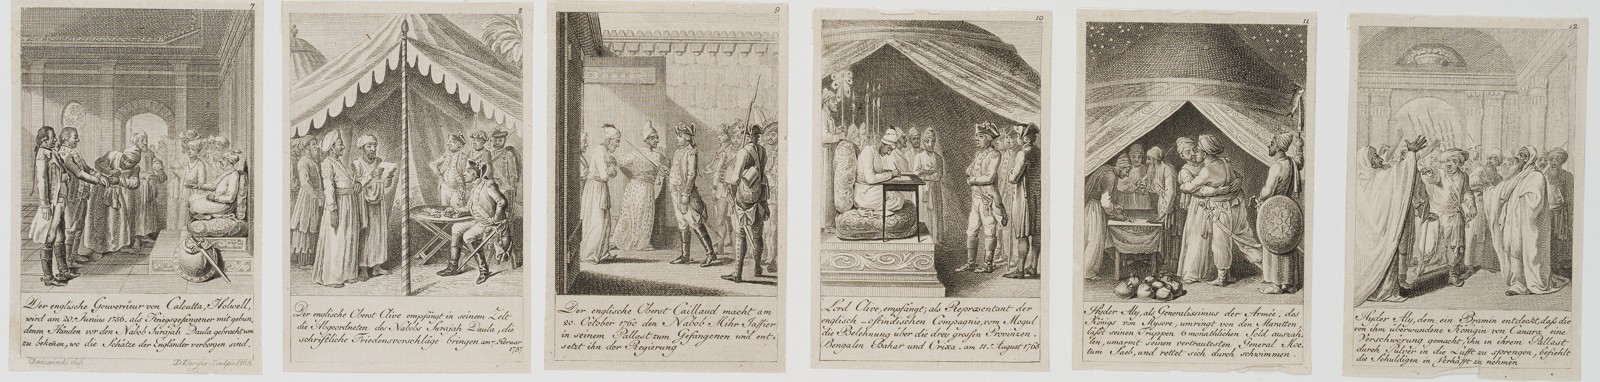 7
Der englische Gouverneur von Calcutta, Holwell,
wird am 20. Junius 1756, als Kriegsgefangener mit gebun,
denen Händen vor den Nabob Surajah Daula gebracht um
zu bekennen, wo die Schätze der Engländer verborgen sind.
D. Berger Sculpsit
8
Der englische Oberst Clive empfängt in seinem Zelt
die Abgeordneten des Nabobs Surajah Daula, die
schriftliche Friedensvorschläge bringen am Februar
1757
9
Der englische Oberst Caillaud macht am
20. October 1760 den Nabob Mihr Jaffier
in seinem Pallast zum Gefangenen und ent-
setzt ihn der Regierung
10
Lord Clive, empfängt, als Repræsentant der
englisch-ostindischen Compagnie, vom Mogul
die Belehnung über die drey grossen Provinzen
Bengalen Bahar und Orixa. am 11. August 1765
11
Hyder Aly, als Generalissimus der Armée, des
Königs von Mysore, umringt von den Maratten,
lässt seinen Truppen 6 monathlichen Sold auszah,
len, umarmt seinen vertrautesten General Moc,
tum Saeb, und rettet sich durch schwimmen.
12
Hyder Aly, dem ein Bramin entdeckt, dass die
von ihm überwundene Königin von Canara eine
Verschwerung gemacht, ihn in ihrem Pallast
durch Pulver in die Lufft zu sprengen, befiehlt
die Schuldigen in Verhafft zu nehmen